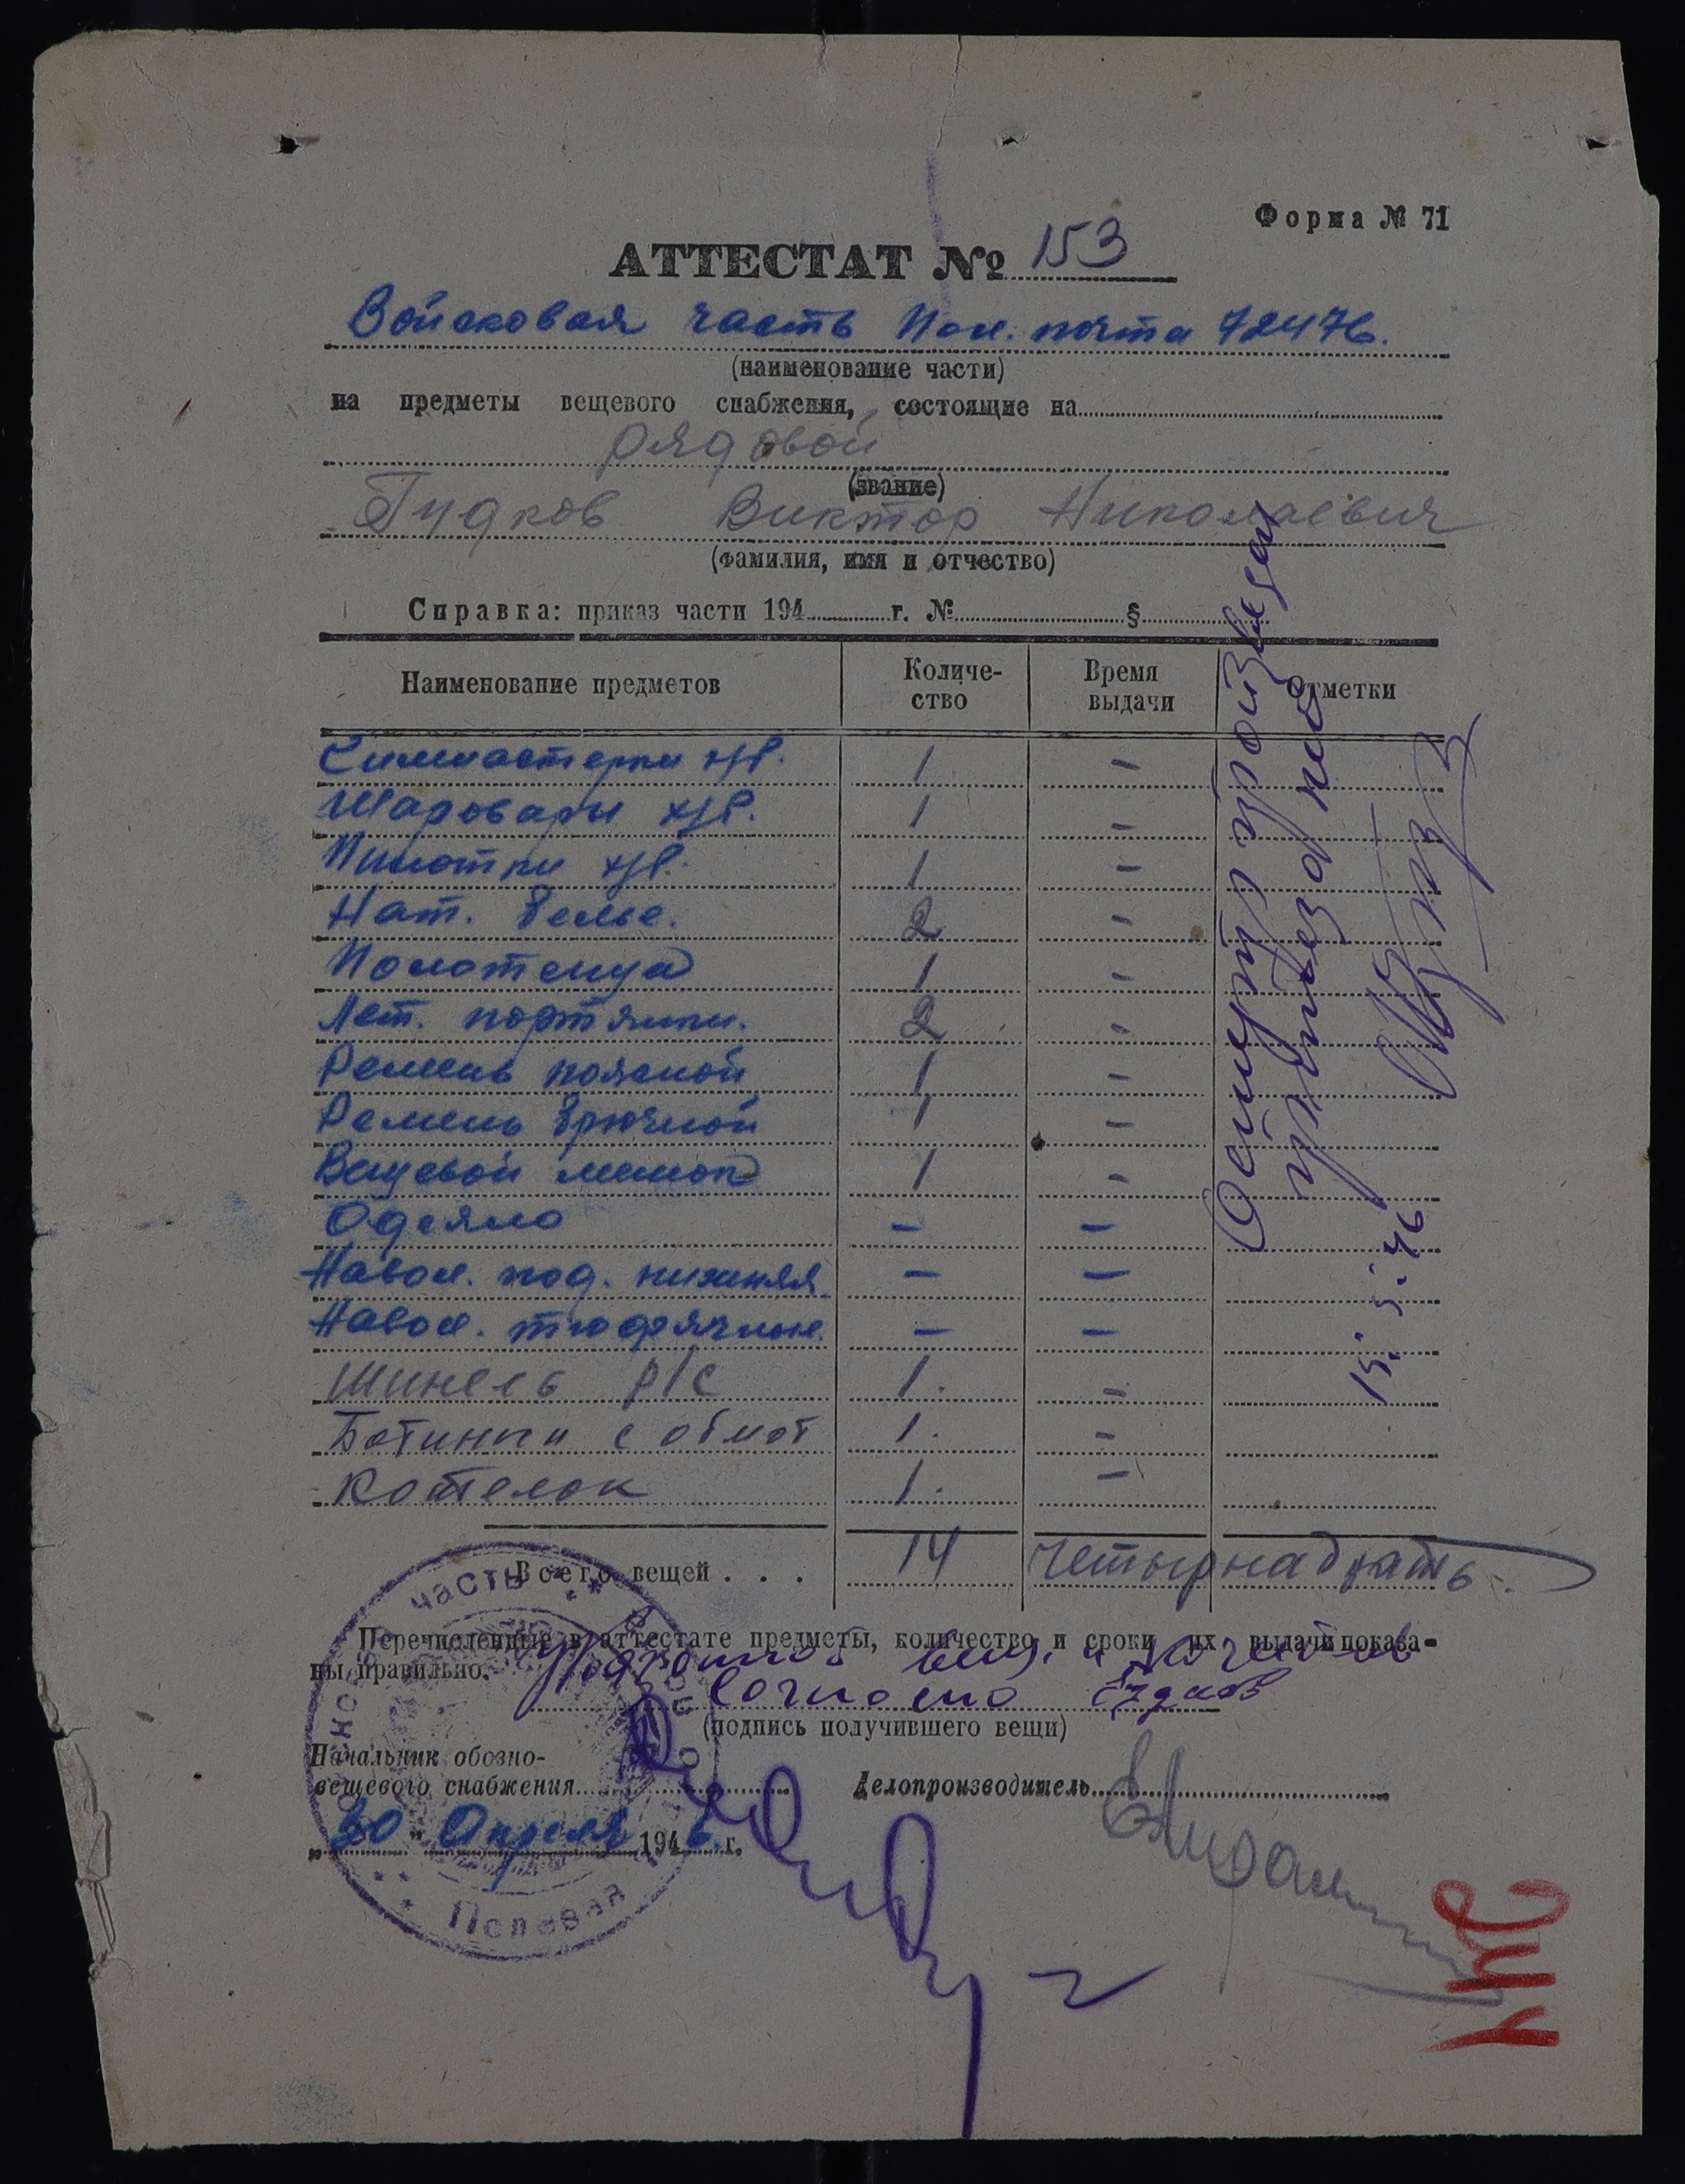 Форма № 71
АТТЕСТАТ № 153
Войсковая часть Пол. почта 72476.
(наименование части)
на предметы вещевого снабжения, состоящие на
рядовой
(звание)
Гудков Виктор Николаевич
(фамилия, имя и отчество)
Справка: приказ части 194 г. № §
Наименование предметов Количество Время выдачи Отметки
Гимнастерки х/б. 1 -
Шаровары х/б. 1 -
Пилотки х/б. 1 -
Нат. белье. 2 -
Полотенца 1 -
Лет. портянки. 2 -
Ремень поясной 1 -
Ремень брючной 1 -
Вещевой мешок 1 -
Одеяло - -
Навол. под. нижняя - -
Навол. тюфячные. - -
Шинель р/с 1. -
Ботинки с обмот 1. -
Котелок 1. -
Всего вещей . . . 14 четырнадцать.
Осмотр произведен
15.5.46
Перечисленные в аттестате предметы, количество и сроки их выдачи показа-
ны правильно.
вещ. и
согласно Гудков
(подпись получившего вещи)
Начальник обозно-
вещевого снабжения
Делопроизводитель
„30" Апреля 1946. г.
часть
Полевая